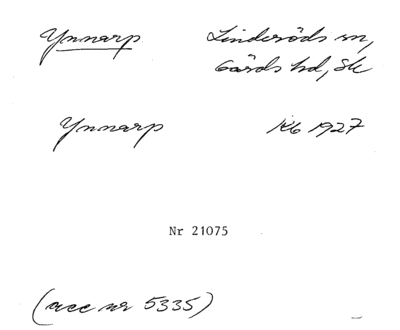 Ynnarp Linderöds sn,
Gärds hd, Sk
Ynnarp Kb 1927
Nr 21075
(acc nr 5335)